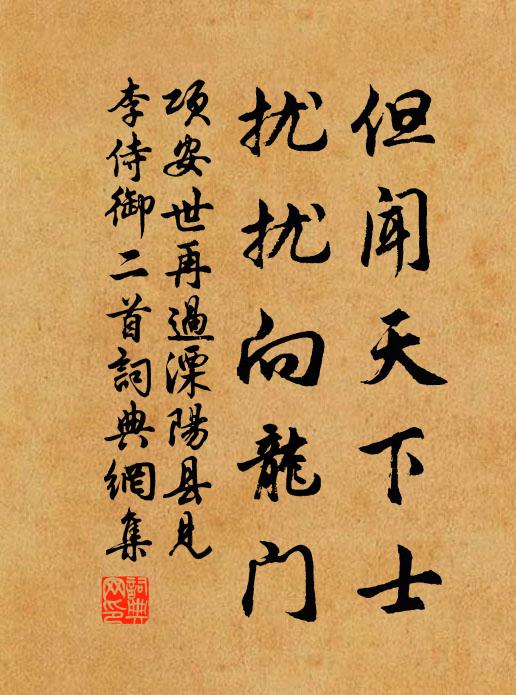 但闻天下士
扰扰向龍门
项安世再過溧陽县見
李侍御二首詞典網集
詞典
网印